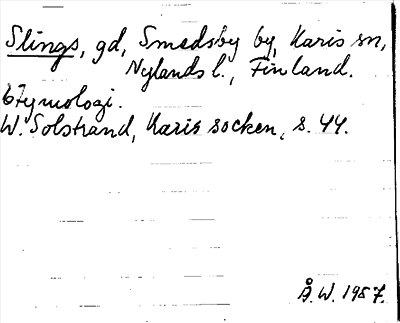 Slings, gd, Smedsby by, Karis sn,
Nylands l., Finland.
Etymologi.
W. Solstrand, Karis socken, s. 44.
Å. W. 1987.